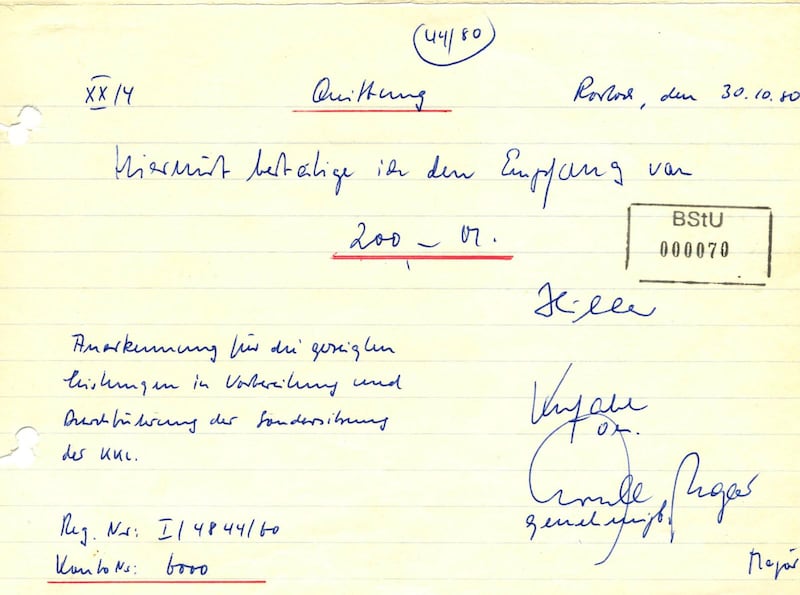 44/80
XX/4 Quittung Rostock, den 30.10.80
Hiermit bestätige ich den Empfang von
200,- M.
BStU
000070
Anerkennung für die gezeigten
Leistungen in Vorbereitung und
Durchführung der Sondersitzung
der KKL.
genehmigt
Reg. Nr: I/4844/60
Konto Nr: 6000
Major